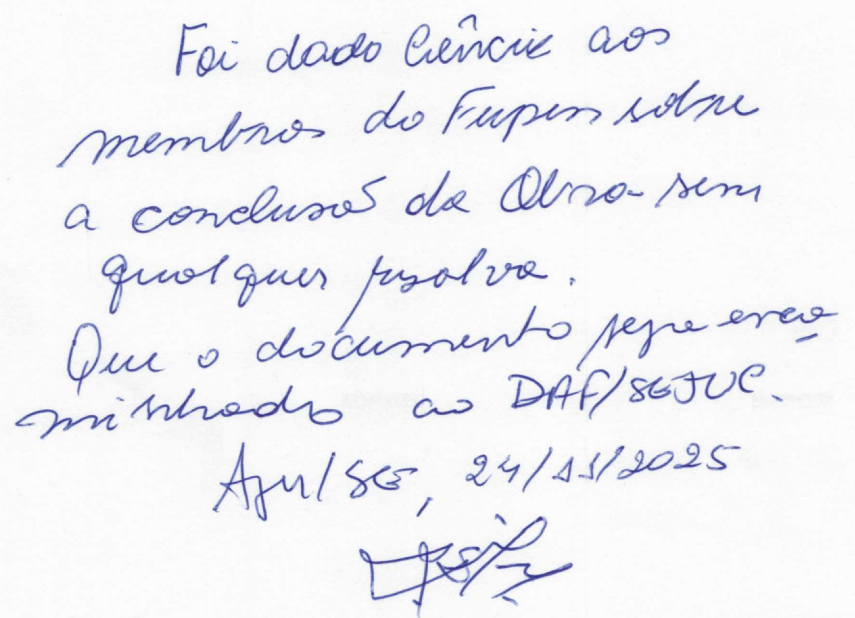 Foi dado Ciência aos
membros do Fupen sobre
a conclusão da Obra sem
qualquer resalva.
Que o documento seja enca
minhado ao DAF/SEJUC.
Aju/SE, 24/11/2025